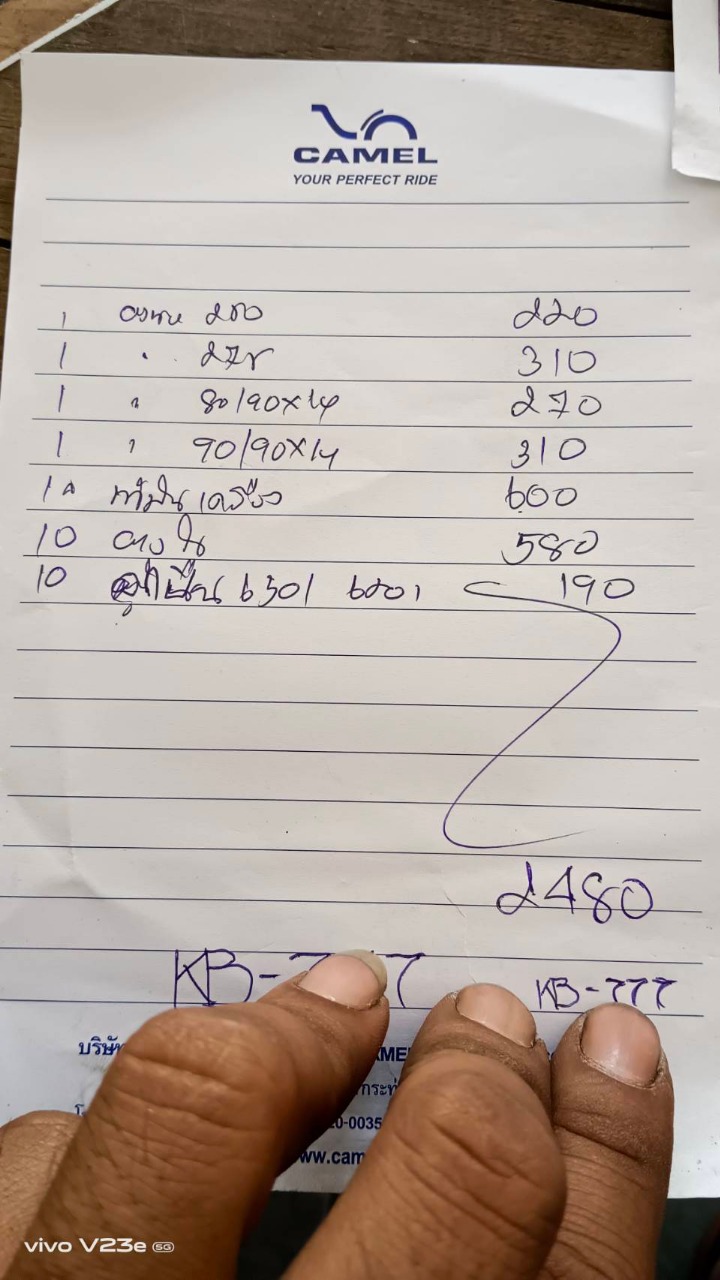 CAMEL
YOUR PERFECT RIDE
1 ยางนอก 250 220
1 " 275 310
1 " 80/90X14 270
1 " 90/90X14 310
1 น้ำมันเครื่อง 600
10 ยางใน 580
10 ลูกปืน 6301 6201 190
2480
KB-777 KB-777
บริษัท
20-0035
vivo V23e 5G